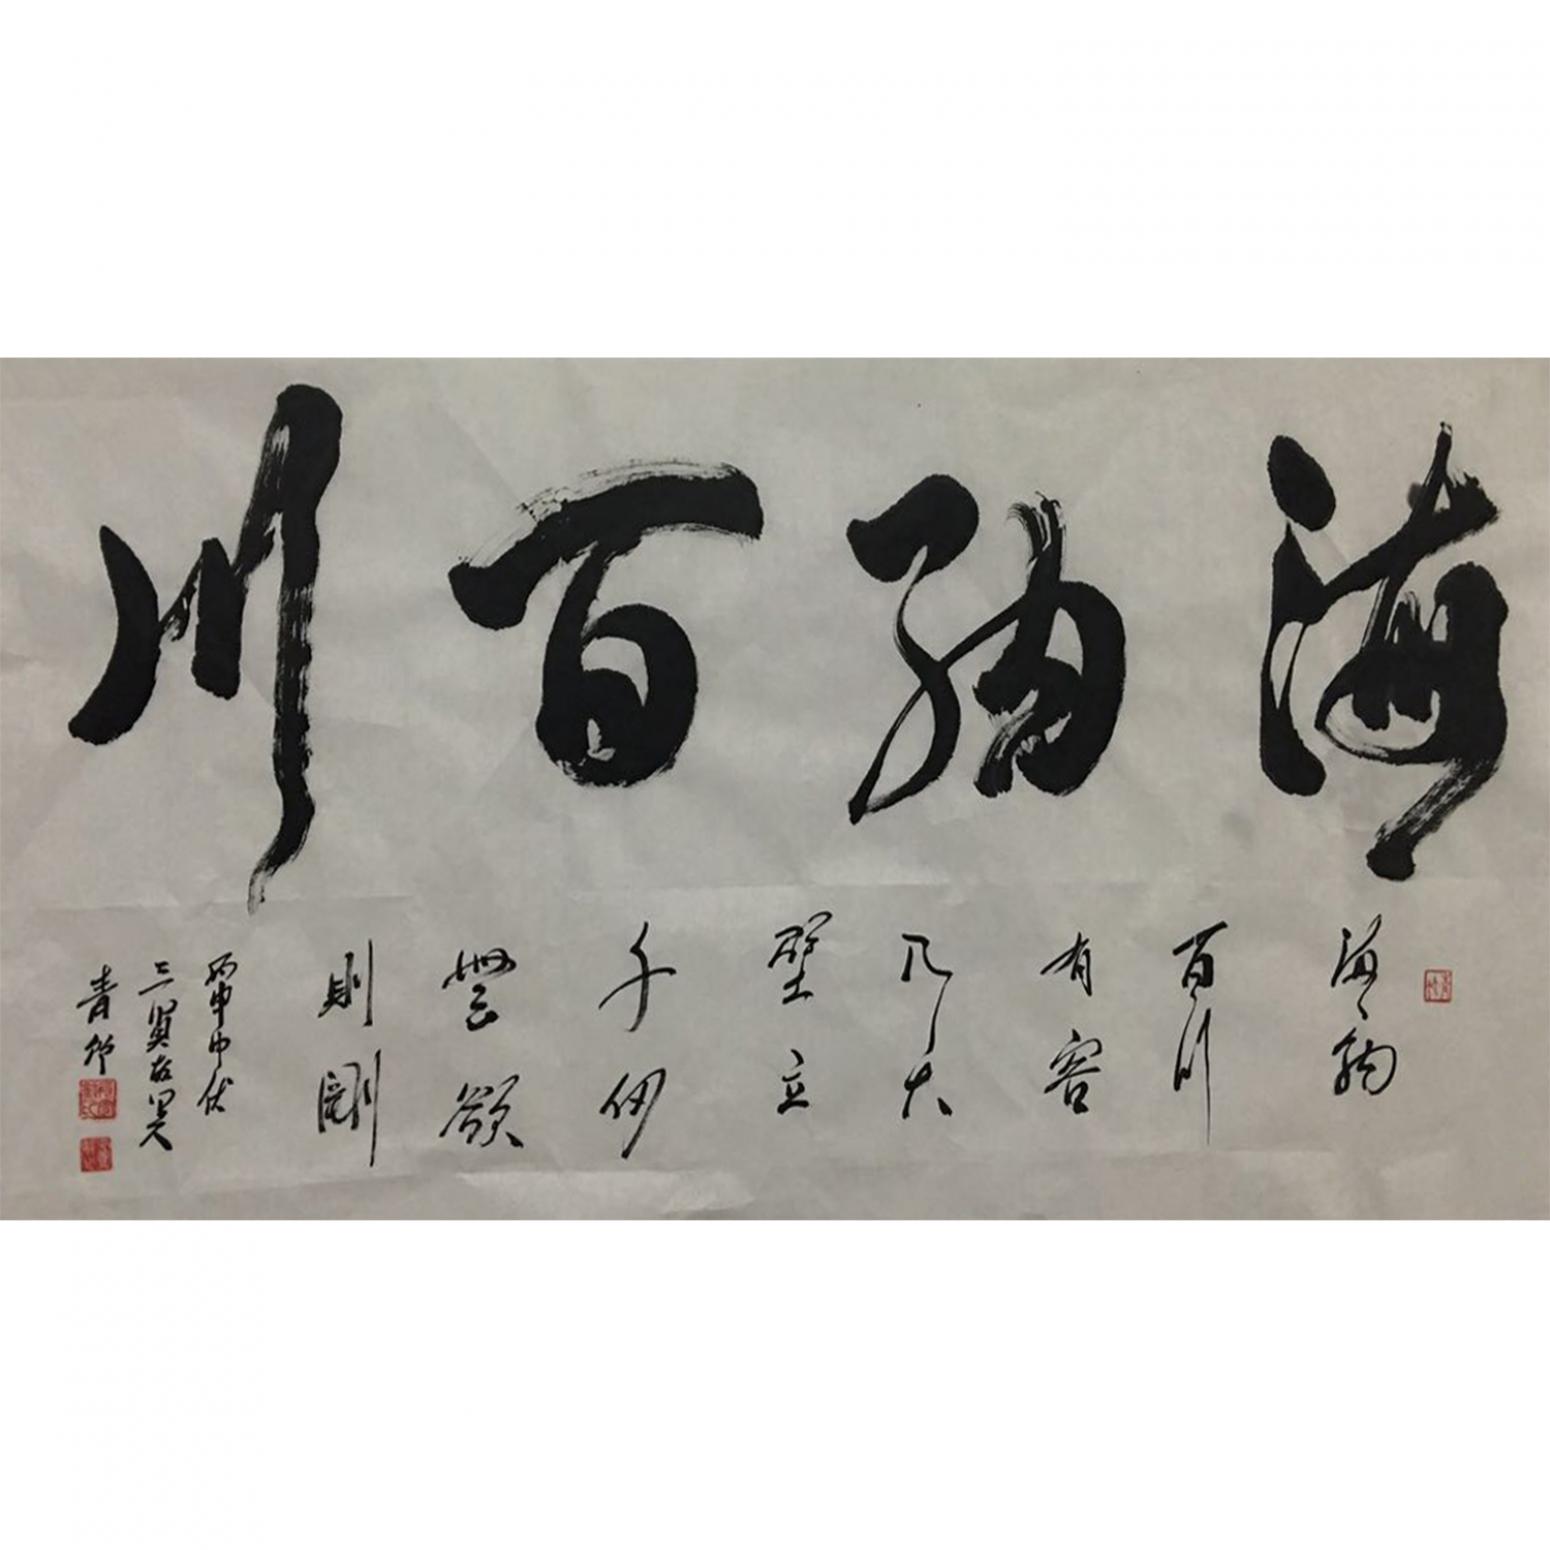 海納百川
海納
百川
有容
乃大
壁立
千仞
無欲
則剛
丙申中伏
青竹